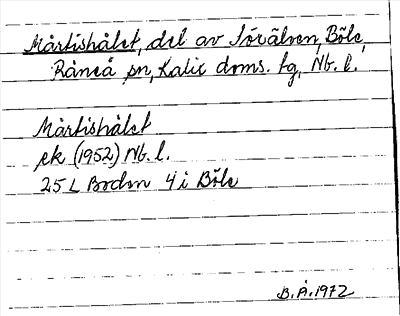 Mårtishålet, del av Sörälven, Böle,
Råneå sn, Kalix doms. tg, Nb. l.
Mårtishålet
ek (1952) Nb. l.
25 L Boden 4 i Böle
B. Å. 1972